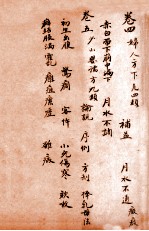 卷四 婦人方下凡四類
補益 月水不通
赤白帶下崩中漏下 月水不調
卷五 少小嬰孺方凡九類 論說 序例 方例
初生出腹 驚癇 客忤 小兒傷寒 欬嗽
癖結脹滿 癰疽瘰癧 雜病